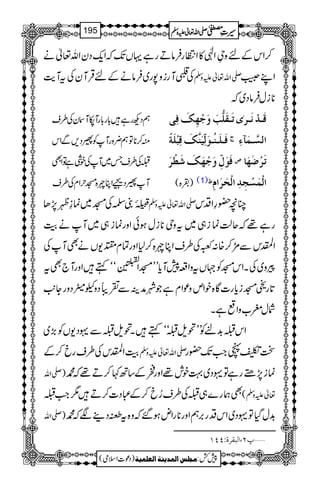 سیرتِ مصطفیٰ صلی اللہ تعالیٰ علیہ وسلم
195
کر اس کے لئے وحی الٰہی کا انتظار فرماتے رہے یہاں تک کہ ایک دن اللہ تعالیٰ نے
اپنے حبیب صلی اللہ تعالیٰ علیہ وسلم کی قلبی آرزو پوری فرمانے کے لئے قرآن کی یہ آیت
نازل فرما دی کہ
قَدْ نَرٰى تَقَلُّبَ وَجْهِكَ فِى
السَّمَآءِ ۚ فَلَنُوَلِّيَنَّكَ قِبْلَةً
تَرْضٰهَا ۪ فَوَلِّ وَجْهَكَ شَطْرَ
الْمَسْجِدِ الْحَرَامِ ؕ (1) (بقرہ)
ہم دیکھ رہے ہیں بار بار آپ کا آسمان کی طرف
منہ کرنا تو ہم ضرور آپ کو پھیر دیں گے اس
قبلہ کی طرف جس میں آپ کی خوشی ہے تو ابھی
آپ پھیر دیجئے اپنا چہرہ مسجد حرام کی طرف
چنانچہ حضور اقدس صلی اللہ تعالیٰ علیہ وسلم قبیلۂ بنی سلمہ کی مسجد میں نماز ظہر پڑھا
رہے تھے کہ حالت نماز ہی میں یہ وحی نازل ہوئی اور نماز ہی میں آپ نے بیت
المقدس سے مڑ کر خانہ کعبہ کی طرف اپنا چہرہ کر لیا اور تمام مقتدیوں نے بھی آپ کی
پیروی کی۔ اس مسجد کو جہاں یہ واقعہ پیش آیا ’’مسجد القبلتین‘‘ کہتے ہیں اور آج بھی یہ
تاریخی مسجد زیارت گاہ خواص و عوام ہے جو شہر مدینہ سے تقریباً دو کیلومیٹر دور جانب
شمال مغرب واقع ہے۔
اس قبلہ بدلنے کو ’’تحویل قبلہ‘‘ کہتے ہیں۔ تحویل قبلہ سے یہودیوں کو بڑی
سخت تکلیف پہنچی جب تک حضور صلی اللہ تعالیٰ علیہ وسلم بیت المقدس کی طرف رخ کر کے
نماز پڑھتے رہے تو یہودی بہت خوش تھے اور فخر کے ساتھ کہا کرتے تھے کہ محمد (صلی اللہ
تعالیٰ علیہ وسلم) بھی ہمارے ہی قبلہ کی طرف رُخ کر کے عبادت کرتے ہیں مگر جب قبلہ
بدل گیا تو یہودی اس قدر برہم اور ناراض ہو گئے کہ وہ یہ طعنہ دینے لگے کہ محمد (صلی اللہ
......پ ۲، البقرۃ: ۱۴۴
پیش کش: مجلس المدینۃ العلمیۃ (دعوتِ اسلامی)